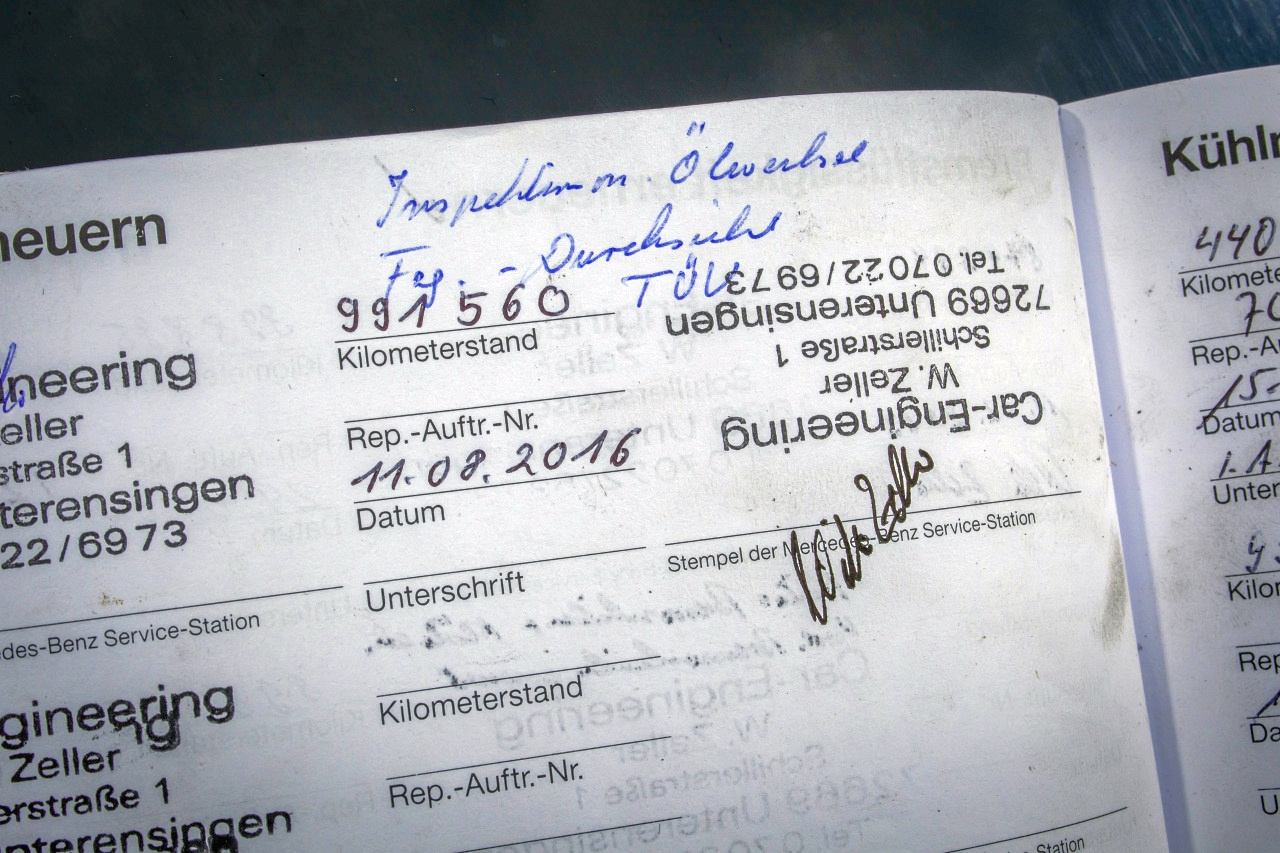 neuern
neering
eller
straße 1
terensingen
22/6973
des-Benz Service-Station
gineering
ng
Zeller
erstraße 1
nterensingen
Inspektion Ölwechsel
Fzg. - Durchsicht
TÜV
991 560
Kilometerstand
Rep.-Auftr.-Nr.
11.08.2016
Datum
Unterschrift
Car-Engineering
W. Zeller
Schillerstraße 1
72669 Unterensingen
Tel. 07022/6973
Stempel der Mercedes-Benz Service-Station
Kilometerstand
Rep.-Auftr.-Nr.
des-Benz Service-Station
Kühlm
440
Kilomete
70
Rep.-Au
15-
Datum
i.A.
Unter
Kilon
Rep
Da
U